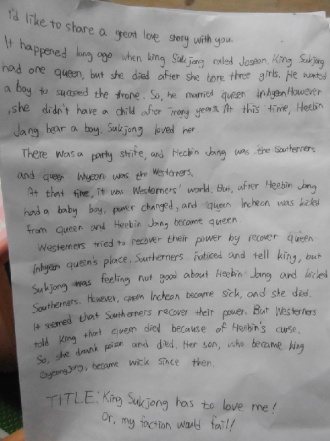 I'd like to share a great love story with you.
It happened long age when king Sukjong ruled Joseon. King Sukjong
had one queen, but she died after she bore three girls. He wanted
a boy to succeed the throne. So, he married queen Inhyeon. However
, she didn't have a child after many years. At this time, Heebin
Jang bear a boy. Sukjong loved her.
There was a party strife, and Heebin Jang was the Southerners
and queen was the Westerners.
At that time, it was Westerners' world. But, after Heebin Jang
had a baby boy, power changed, and queen Incheon was kicked
from queen and Heebin Jang became queen
Westerners tried to recover their power by recover queen
Inhyeon queen's place. Southerners noticed and tell king, but
Sukjong was feeling not good about Heebin Jang and kicked
Southerners. However, queen Incheon became sick, and she died.
It seemed that Southerners recover their power. But Westerners
told king that queen died because of Heebin's curse.
So, she drank poison and died. Her son, who became king
Gyeongjong, became wick since then.
TITLE: King Sukjong has to love me!
Or, my faction would fail!